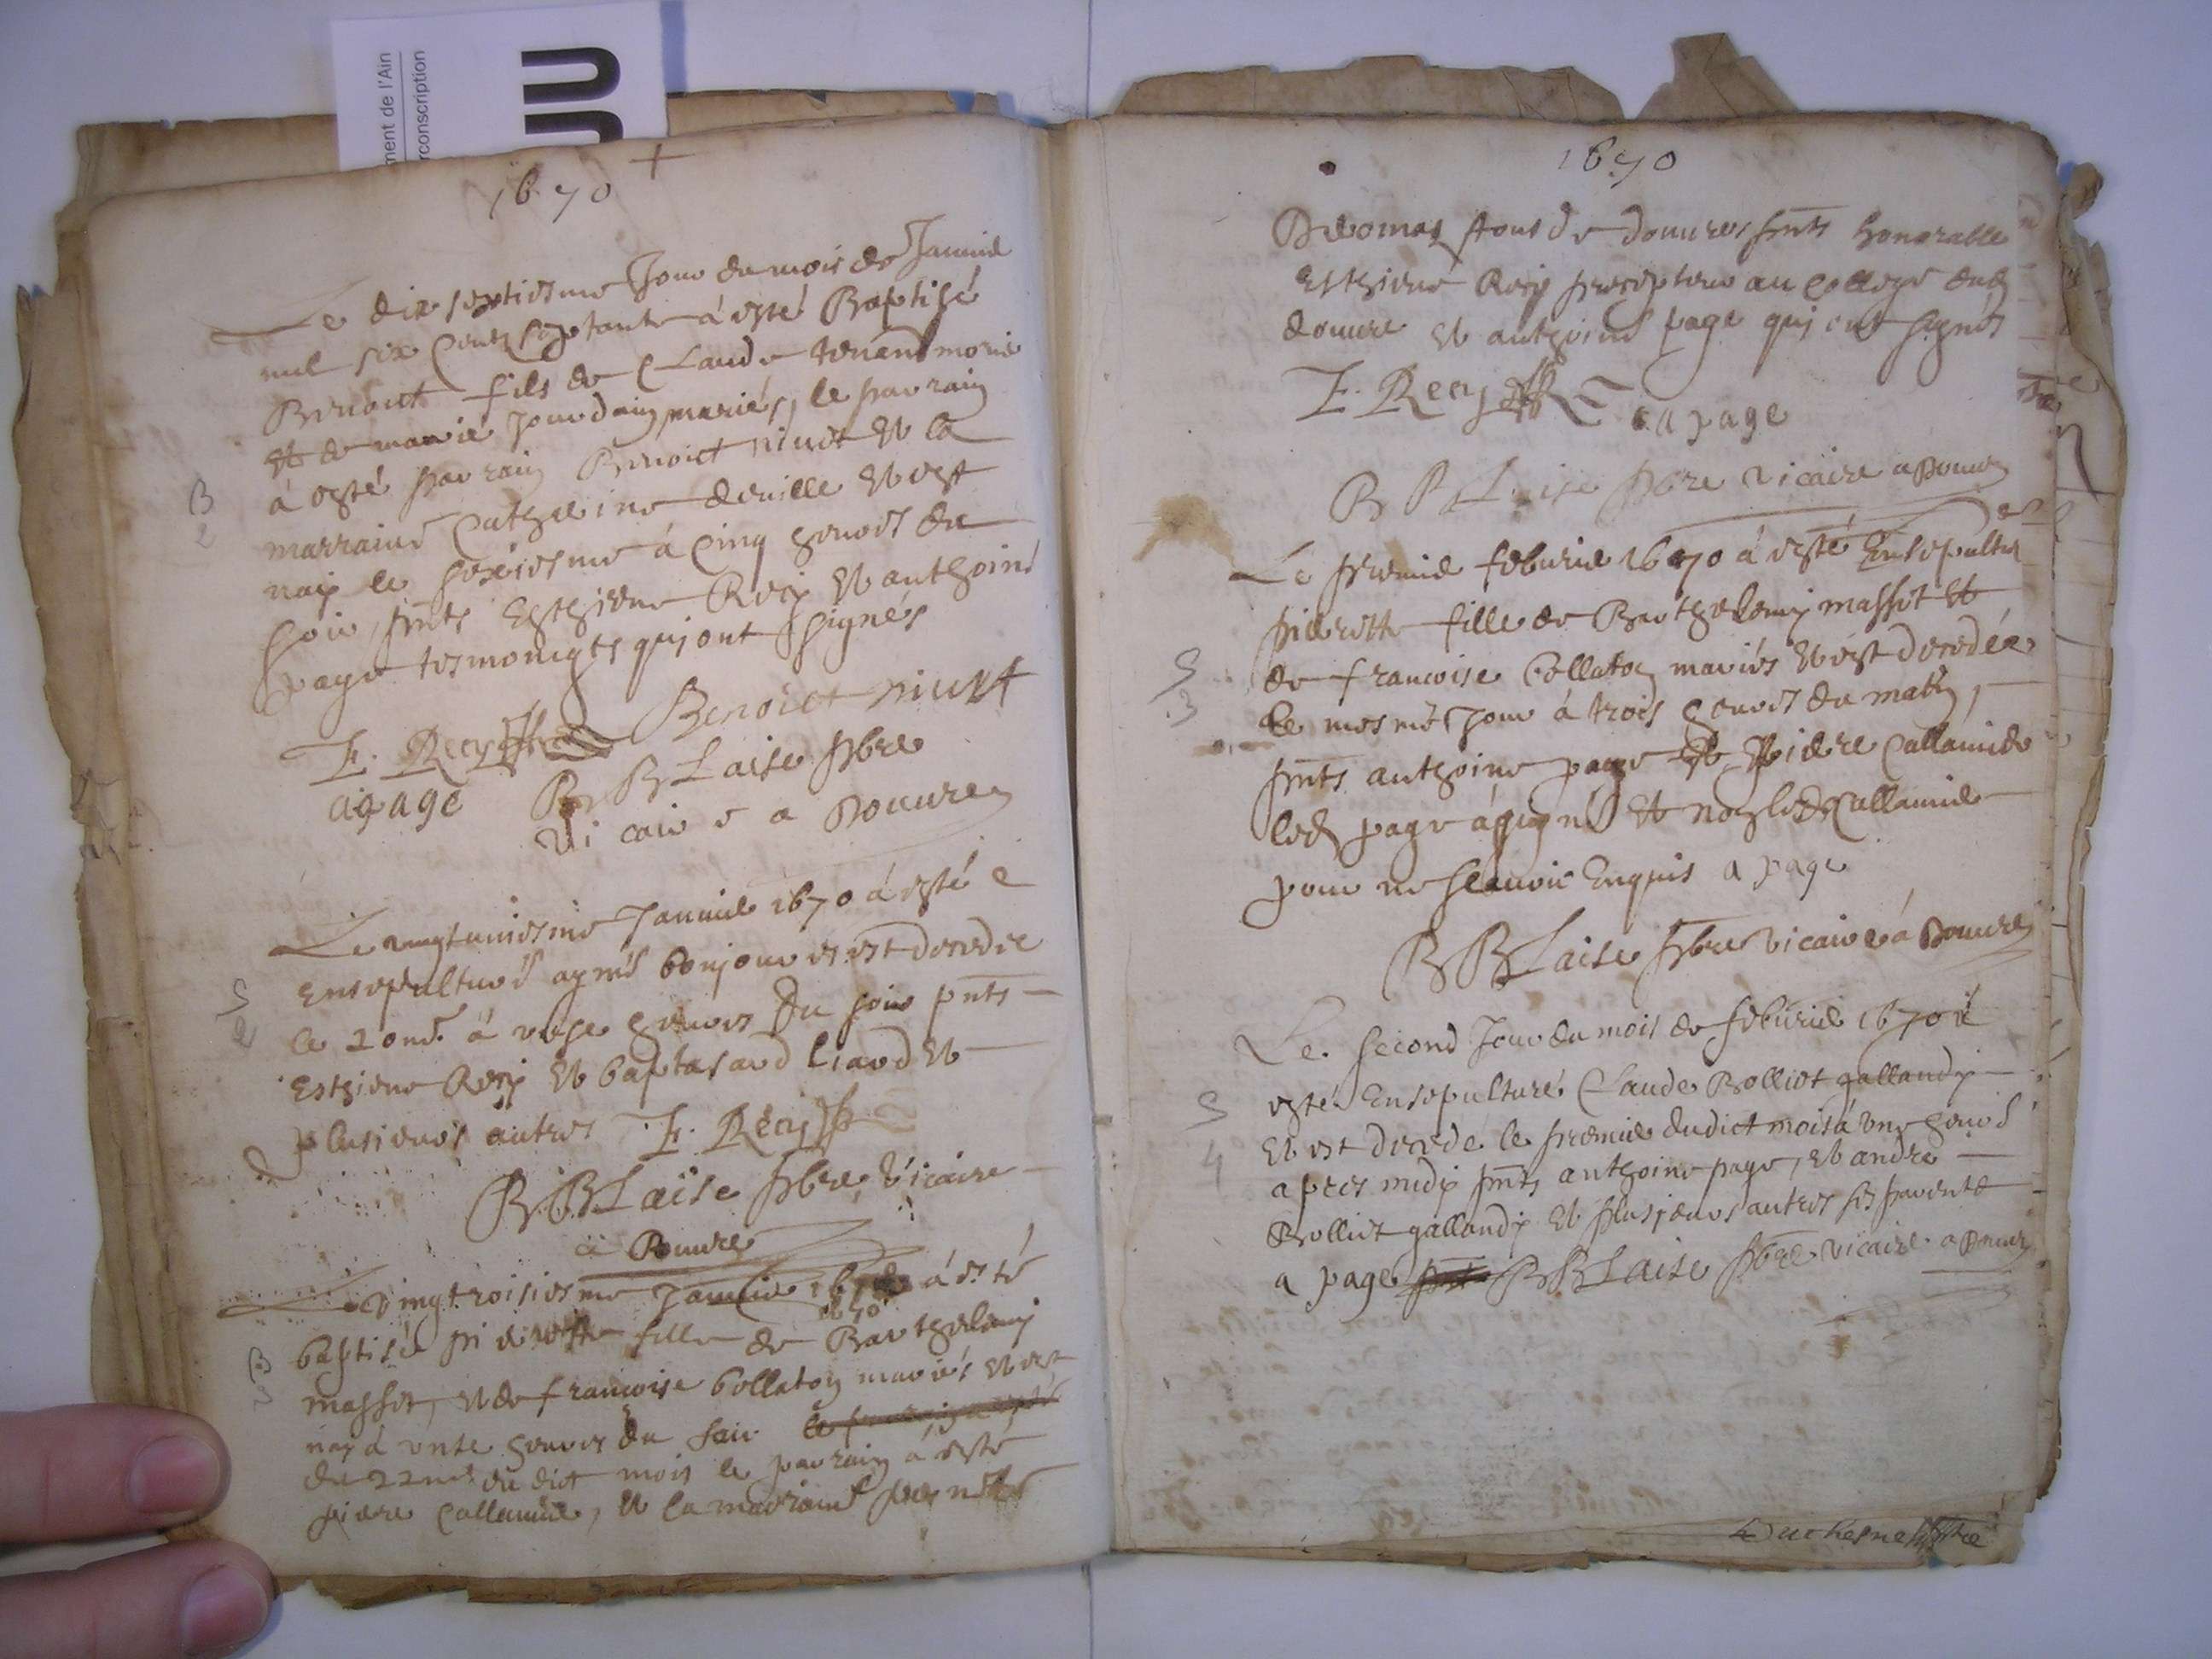 ment de l'Ain
rconscription
JU
1670
Le dix septiesme Jour du mois de Januie
mil six Cents septante à esté Baptisé
Benoict fils de Claude
et de marie Jourdain mariés, le parrain
à esté parrain Benoict niuet et la
B
marraine Catherine deuille et est
2
nay le seziesme à Cinq heures du
soir, pnts Esthiene Recy et anthoine
page tesmoingts qui ont signés
E. Recy Benoict niuet
a page B BLaise pbre
Vicaire a Douure
Le vingtuniesme Januie 1670 à esté
S
Ensepulturé bonjour et est decede
2
le 20me à heures du soir pnts
Esthiene Recy et baptasard Liard et
plusieurs autres E. Recy
B. BLaise pbre, Vicaire
à Douure
Le Vingtroisiesme Januie à esté
1670
B
baptisé pierette fille de Barthelemy
3
massit, et de francoise Collaton mariés et est
nay à unse heures du soir
du 22me du dict mois le parrain à esté
piere Callamie, et la marraine
1670
tous de douures pnts honorable
Esthiene Recy precepteur au College dud
douure et anthoine page qui ont signés
E. Recy a page
B BLaise pbre vicaire a Douure
Le premie feburie 1670 à esté Ensepultur
pierette fille de Barthelemy massit et
S
de francoise Collaton mariés et est decedée
3
le mesme Jour à trois heures du matin,
pnts anthoine page et piere Callamie
led page à signé et non led Callamie
pour ne scauoir Enquis a page
B BLaise pbre vicaire à Douure
Le second Jour du mois de feburie 1670 à
S
esté Ensepulturé Claude Bolliet gallandy
4
Et est decede le premie dudict mois à une heure
apres midy pnts anthoine page, et andre
Bolliet gallandy et plusieurs autres ses parents
a page B BLaise pbre vicaire a Douure
Duchesne